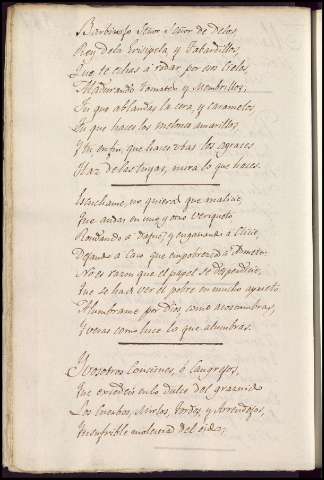 Barbirufo Señor Señor de Delos,
Rey de la Erisipela, y Tabardillos,
Que te echas á rodar por esos Cielos,
Madurando Tomates y Membrillos;
Tu que ablandas la cera, y caramelos,
Tu que haces los melones amarillos,
Y en fin, que haces ubas los agraces
Haz de las tuyas, mira lo que haces.
Escuchame, no quieras que malicie,
Que andas en uno y otro
Rondando á Dafne, y engañando á Clicie,
Dejando a Caco que empobrezca á Admeto.
No es razon que el papel se desperdicie,
Que se ha de ver el pobre en mucho aprieto.
Alumbrame por Dios, como acostumbras,
Y veras como luce lo que alumbras.
Y vosotros Cansiones, ó Cangrejos,
Que excedeis en lo dulce del graznido
Los Cuerbos, Mirlos, Tordos, y Arrendajos,
Ynsufrible molestia del oido;